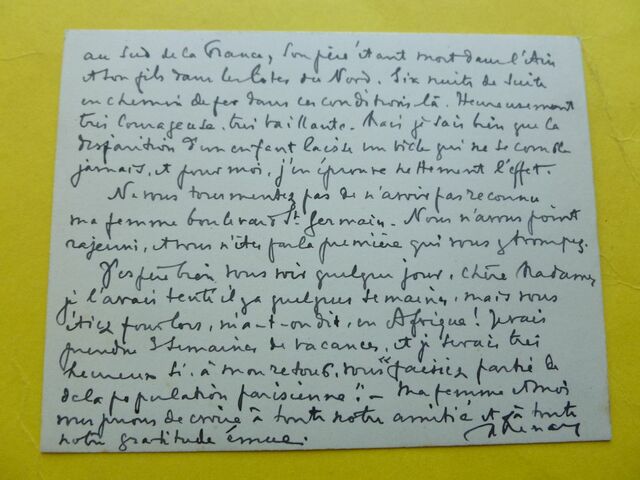 au Sud de la France, son père étant mort dans l'Ain
et son fils dans les Côtes du Nord. Six nuits de suite
en chemin de fer dans ces conditions là. Heureusement
très courageuse, très vaillante. Mais je sais bien que la
disparition d'un enfant laisse un vide qui ne se comble
jamais, et pour moi, j'en éprouve nettement l'effet.
Ne vous tourmentez pas de n'avoir pas reconnu
ma femme boulevard St Germain. Nous n'avons point
rajeuni, et vous n'êtes pas la première qui vous y trompez.
J'espère bien vous voir quelque jour, chère Madame,
je l'avais tenté il y a quelques semaines, mais vous
étiez pour lors, m'a-t-on dit, en Afrique! Je vais
prendre 3 semaines de vacances, et je serais très
heureux si, à mon retour, vous "faisiez partie de
de la population parisienne". - Ma femme et moi
vous prions de croire à toute notre amitié et à toute
notre gratitude émue.